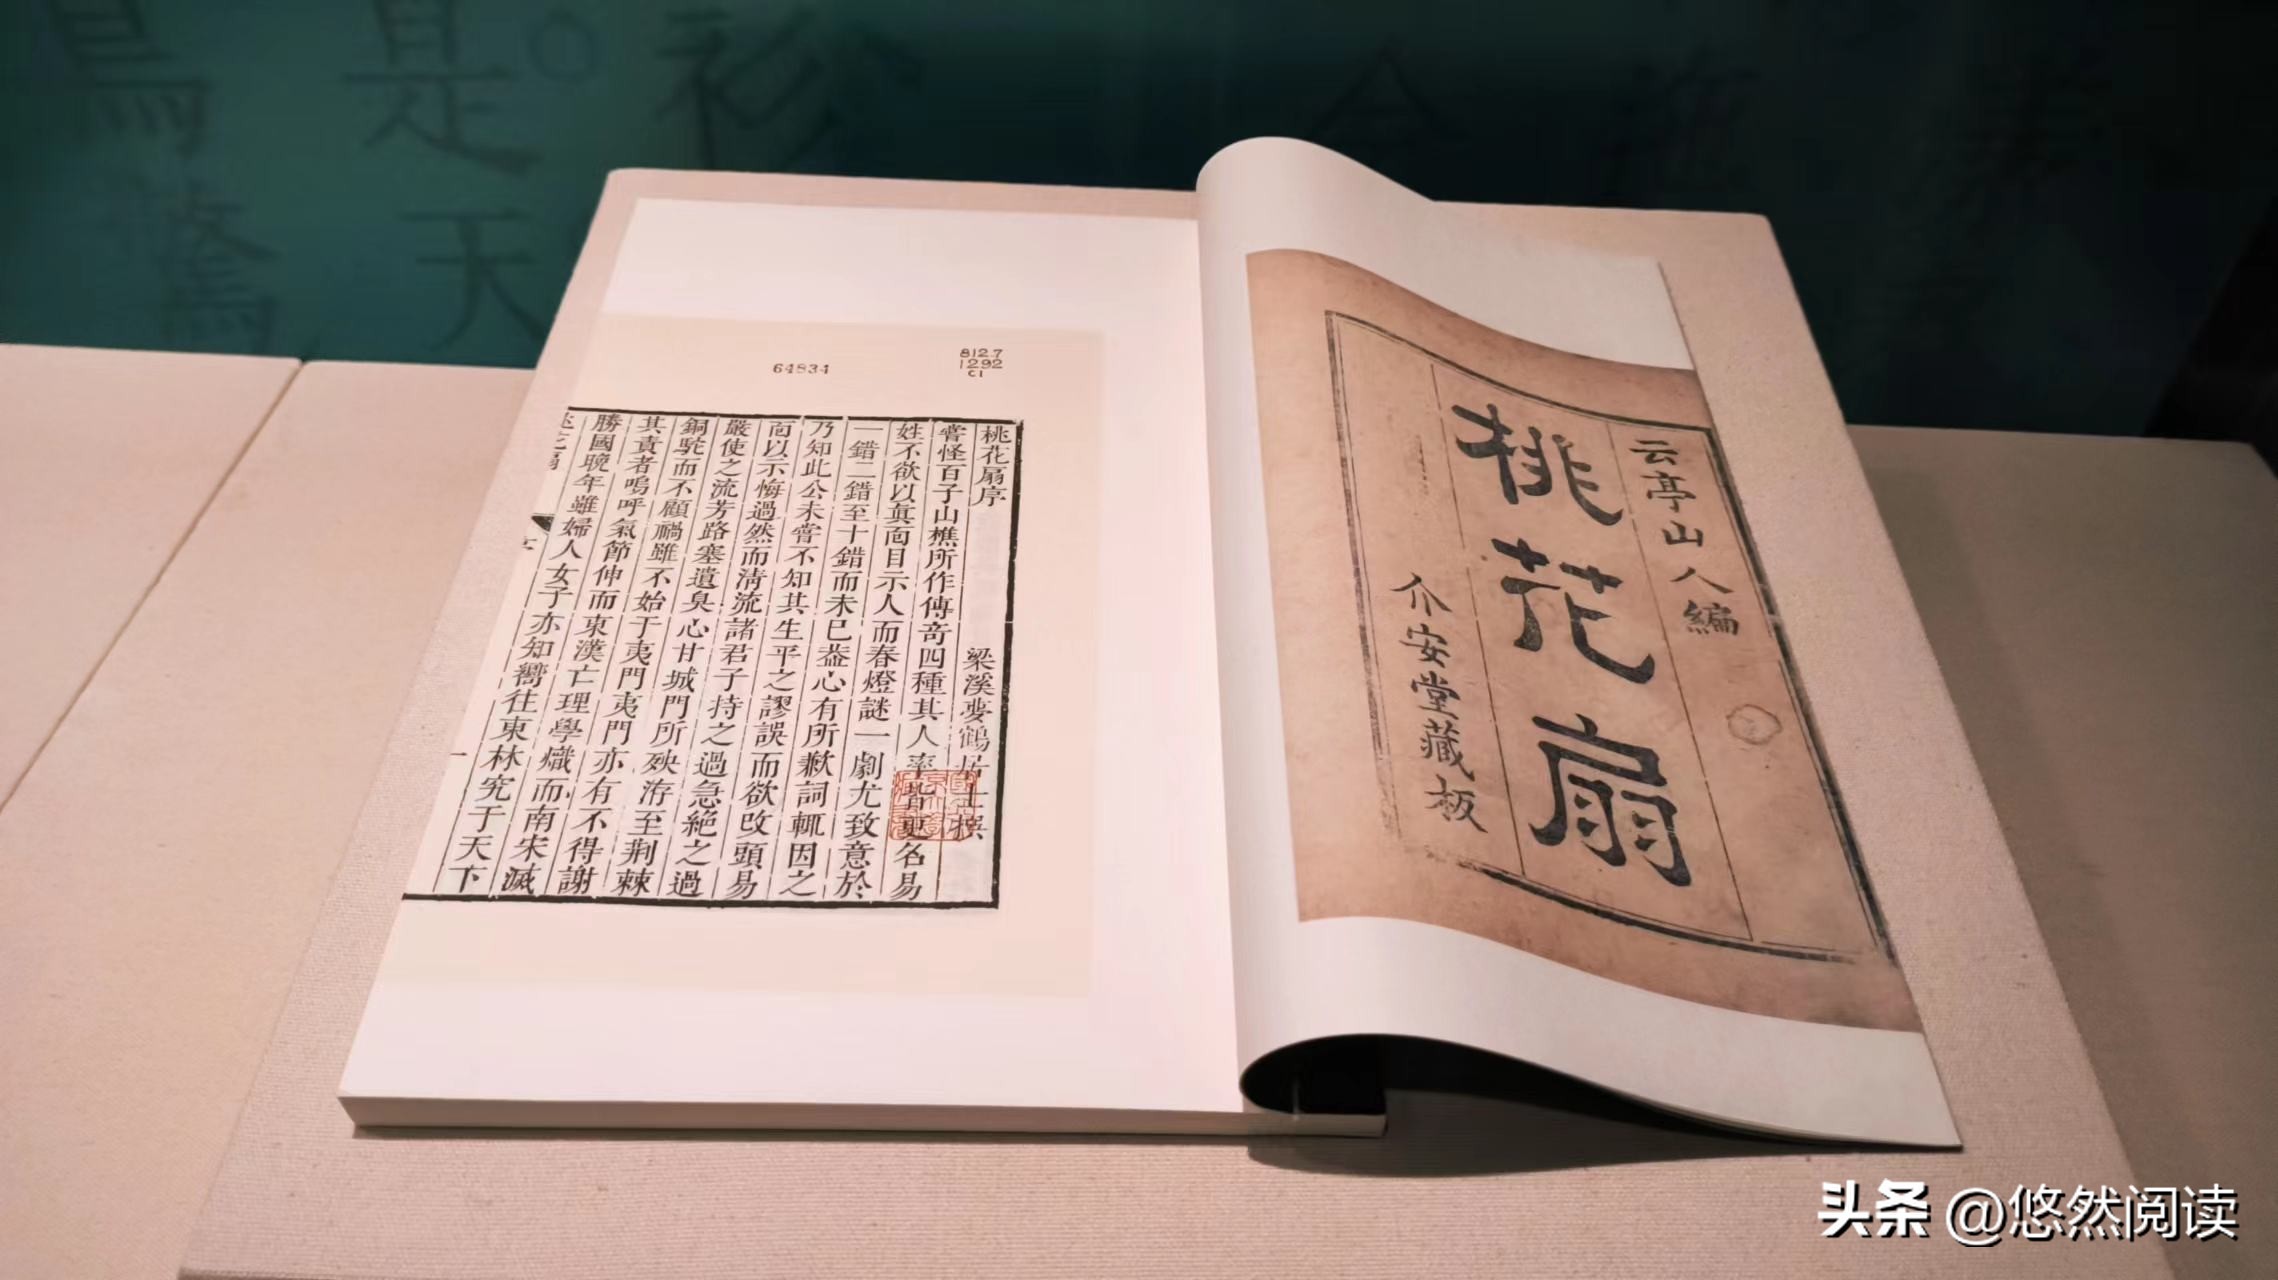 云亭山人編
桃花扇
介安堂藏板
812.7
1292
C1
64834
桃花扇序 梁溪夢鶴居士撰
嘗怪百子山樵所作傳奇四種其人率皆更名易
姓不欲以眞面目示人而春燈謎一劇尤致意於
一錯二錯至十錯而未已葢心有所歉詞輒因之
乃知此公未嘗不知其生平之謬誤而欲改頭易
面以示悔過然而淸流諸君子持之過急絕之過
嚴使之流芳路塞遺臭心甘城門所殃洊至荆棘
銅駝而不顧禍雖不始于夷門夷門亦有不得謝
其責者嗚呼氣節伸而東漢亡理學熾而南宋滅
勝國晚年雖婦人女子亦知嚮往東林究于天下
一
衫
是天
头条 @悠然阅读